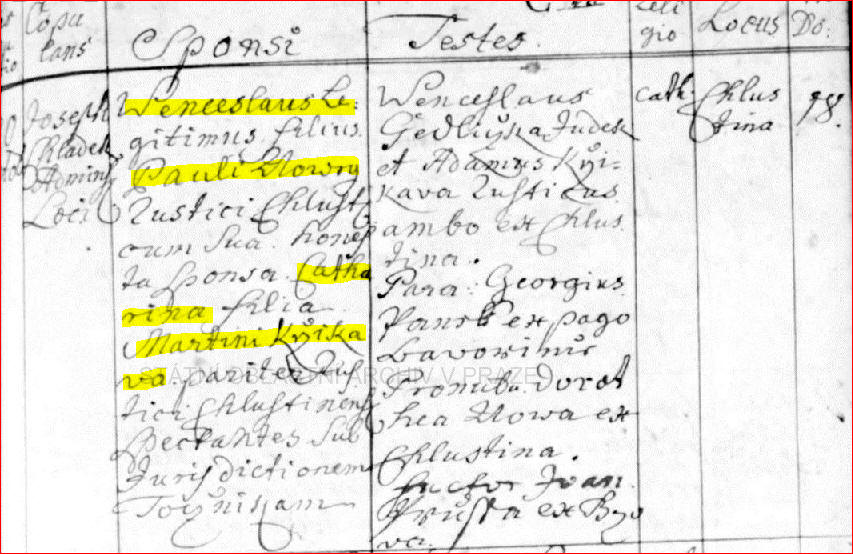 Copu
lans
Sponsi
Testes.
gio
Locus
Do:
Joseph
Chladek
Admini
Loci
Wenceslaus Le:
gitimus filius
Pauli Nowy
Rustici Chlust
cum Sua hones
ta Sponsa Catha
rina filia
Martini Kržika
va. pariter Rus
tici Chlustinens
Spectantes Sub
Jurisdictionem
Točnikam
Wenceslaus
Gedlička Judex
et Adamus Kři-
kava Rusticus
ambo ex Chlus
tina.
Para: Georgius
ex pago
Pronuba. Dorot
hea Nowa ex
Chlustina.
Joan.
ex Bzo
va.
Cath.
Chlus
tina
18.
STÁTNÍ OBLASTNÍ ARCHIV V PRAZE